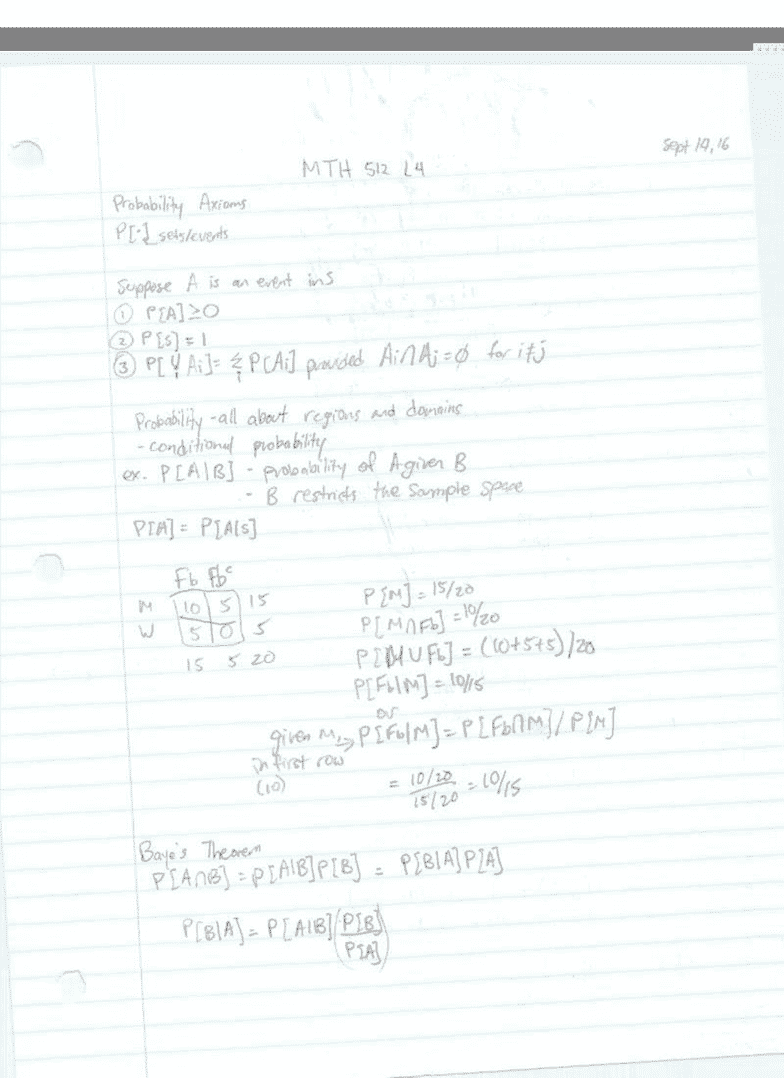 Sept 14, 16
MTH 512 L4
Probability Axioms
P[·] sets/events
Suppose A is an event in S
① P[A] ≥ 0
② P[S] = 1
③ P[∪ᵢ Ai] = Σᵢ P[Ai] provided Ai ∩ Aj = ∅ for i ≠ j
Probability - all about regions and domains
- conditional probability
ex. P[A|B] - probability of A given B
- B restricts the sample space
P[A] = P[A|S]
Fb Fbᶜ
M 10 5 15
W 5 0 5
15 5 20
P[M] = 15/20
P[M∩Fb] = 10/20
P[M∪Fb] = (10+5+5)/20
P[Fb|M] = 10/15
or
given M ↳ P[Fb|M] = P[Fb∩M] / P[M]
in first row
(10) = 10/20 / 15/20 = 10/15
Baye's Theorem
P[A∩B] = P[A|B]P[B] = P[B|A]P[A]
P[B|A] = P[A|B] (P[B] / P[A])